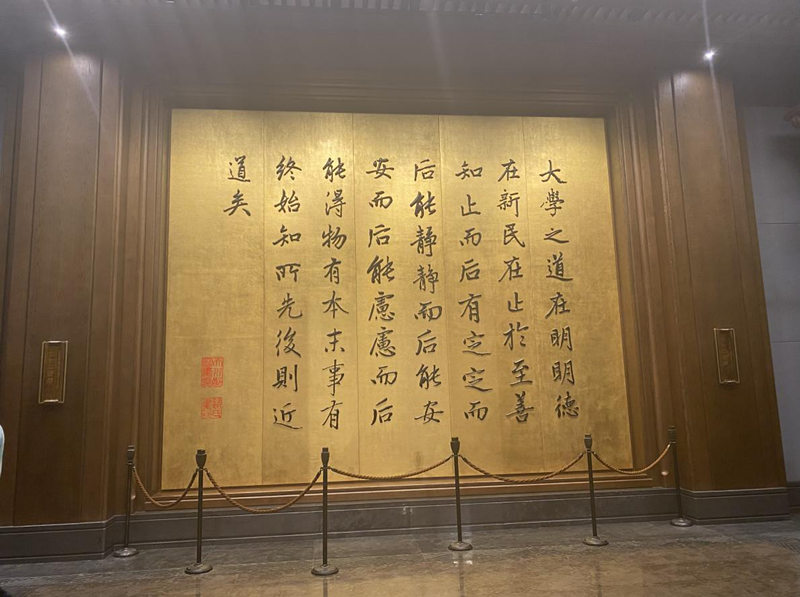 大學之道在明明德
在新民在止於至善
知止而后有定定而
后能静静而后能安
安而后能慮慮而后
能得物有本末事有
終始知所先後則近
道矣